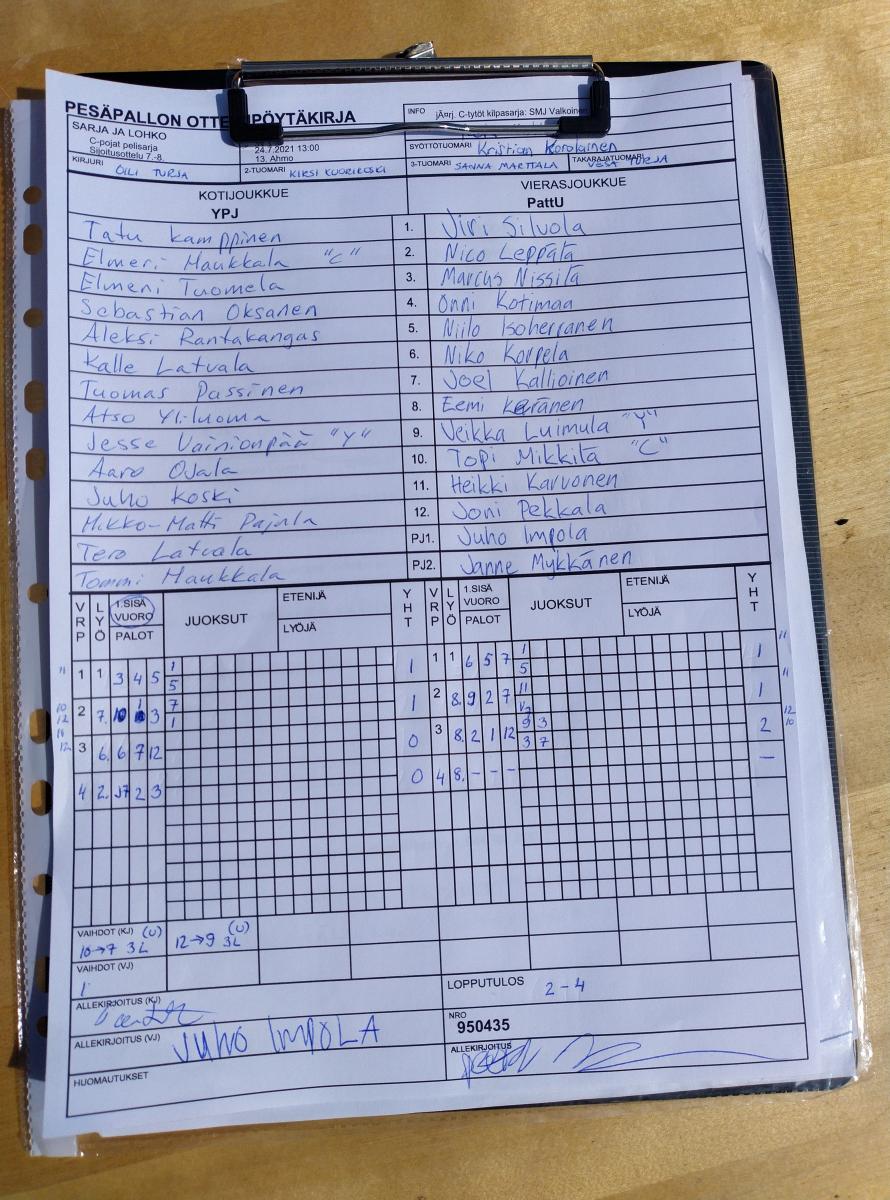 PESÄPALLON OTTE PÖYTÄKIRJA
INFO jÃ¤rj. C-tytöt kilpasarja: SMJ Valkoinen
SARJA JA LOHKO
C-pojat pelisarja
Sijoitusottelu 7.-8.
24.7.2021 13:00
13. Ahmo
SYÖTTÖTUOMARI Kristian Korolainen
KIRJURI OILI TURJA
2-TUOMARI KIRSI KUORIKOSKI
3-TUOMARI SANNA MARTTALA
TAKARAJATUOMARI VESA TURJA
KOTIJOUKKUE
YPJ
VIERASJOUKKUE
PattU
Tatu Kamppinen 1. Jiri Silvola
Elmeri Haukkala "C" 2. Nico Leppätä
Elmeri Tuomela 3. Marcus Nissilä
Sebastian Oksanen 4. Onni Kotimaa
Aleksi Rantakangas 5. Niilo Isoherranen
Kalle Latvala 6. Niko Korpela
Tuomas Passinen 7. Joel Kallioinen
Atso Yli-luoma 8. Eemi Keränen
Jesse Vainionpää "Y" 9. Veikka Luimula "Y"
Aaro Ojala 10. Topi Mikkilä "C"
Juho Koski 11. Heikki Karvonen
Mikko-Matti Pajula 12. Joni Pekkala
Tero Latvala PJ1. Juho Impola
Tommi Haukkala PJ2. Janne Mykkänen
VRP LYÖ 1.SISÄ VUORO PALOT JUOKSUT ETENIJÄ LYÖJÄ YHT VRP LYÖ 1.SISÄ VUORO PALOT JUOKSUT ETENIJÄ LYÖJÄ YHT
1 1 3 4 5 1 5 1 1 1 6 5 7 1 5 1
2 7. 10 3 7 1 1 2 8. 9 2 7 11 1
3 6. 6 7 12 0 3 8. 2 1 12 9 3 3 7 2
4 2. J7 2 3 0 4 8. - - - -
VAIHDOT (KJ) (U) 10→7 3L 12→9 (U) 3L
VAIHDOT (VJ)
ALLEKIRJOITUS (KJ)
LOPPUTULOS 2-4
ALLEKIRJOITUS (VJ) JUHO IMPOLA
NRO
950435
HUOMAUTUKSET
ALLEKIRJOITUS